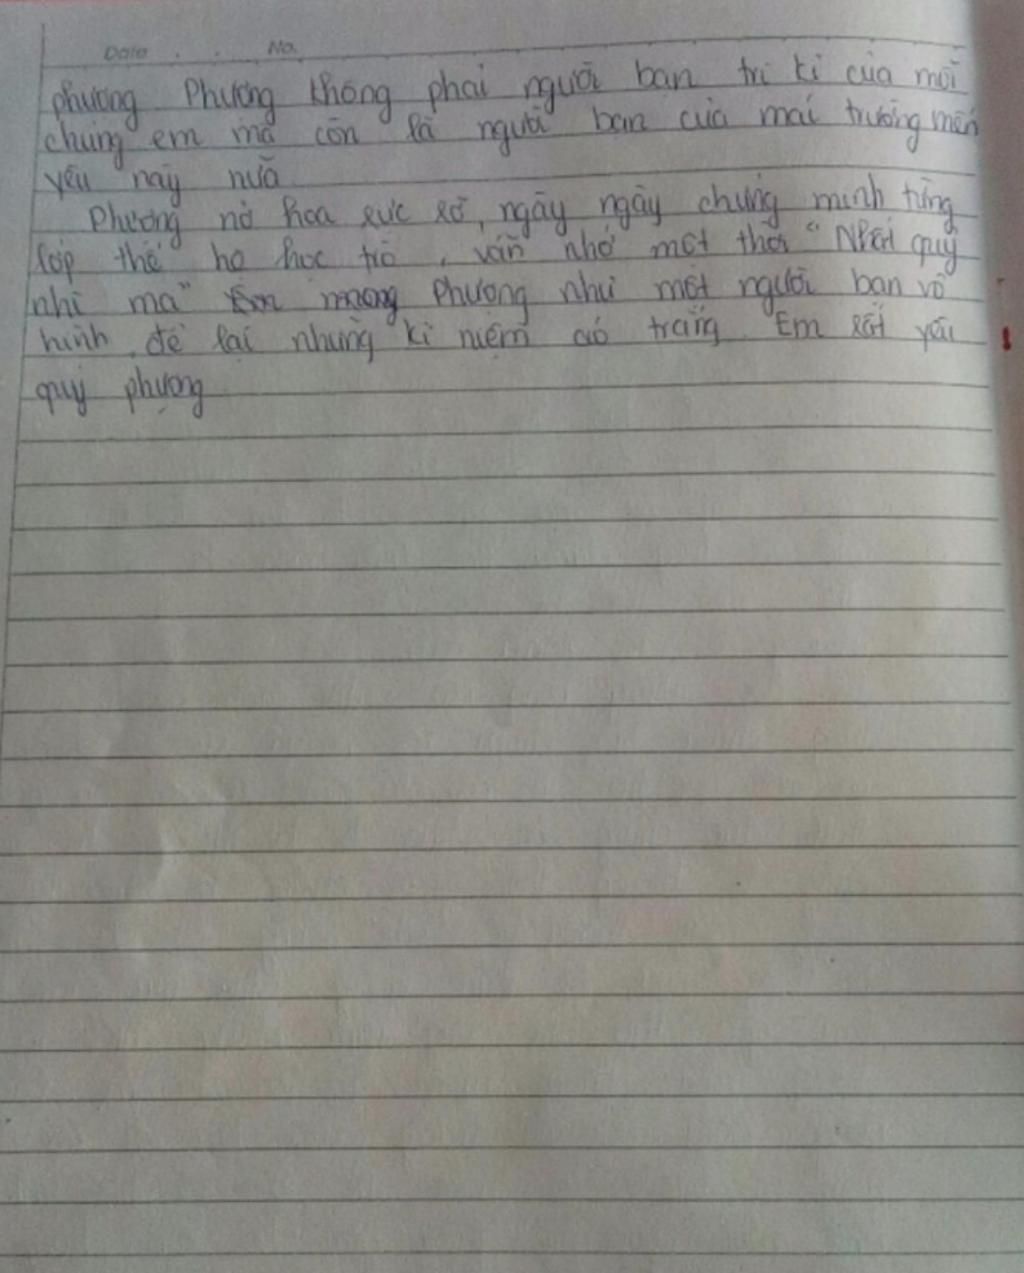 Date . . No.
phượng Phượng không phải người bạn tri kỉ của mỗi
chúng em mà còn là người bạn của mái trường mến
yêu này nữa
Phượng nở hoa rực rỡ, ngày ngày chứng minh từng
lớp thế hệ học trò, vẫn nhớ một thời "Nhất quỷ
nhì ma" Em mong Phượng như một người bạn vô
hình để lại những kỉ niệm áo trắng Em rất yêu
quý phượng